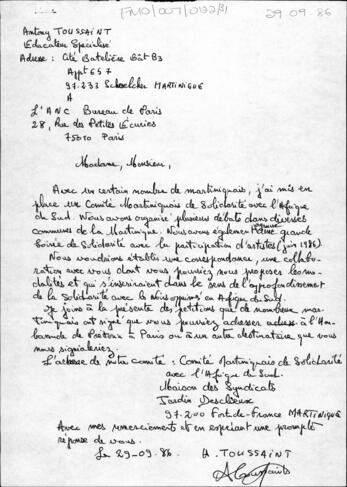 FMO/007/0132/31
29.09.86
Antony TOUSSAINT
Educateur Spécialisé
Adresse : Cité Batelière Bât B3
Appt 657
97.233 Schoelcher MARTINIQUE
A
L'ANC Bureau de Paris
28, Rue des Petites Ecuries
75010 Paris
Madame, Monsieur,
Avec un certain nombre de martiniquais, j'ai mis en
place un Comité Martiniquais de Solidarité avec l'Afrique
du Sud. Nous avons organisé plusieurs débats dans diverses
communes de la Martinique. Nous avons également une grande
Soirée de Solidarité avec la participation d'artistes (juin 1986).
Nous voudrions établir une correspondance, une collabo-
ration avec vous dont vous pourriez nous proposer les mo-
dalités et qui s'inscriraient dans le sens de l'approfondissement
de la Solidarité avec la opprimés en Afrique du Sud.
Je joins à la présente des pétitions que de nombreux mar-
tiniquais ont signé que vous pourriez adresser à l'Am-
bassade de Prétoria à Paris ou à un autre destinataire que vous
nous signaleriez.
L'adresse de notre comité : Comité Martiniquais de Solidarité
avec l'Afrique du Sud.
Maison des Syndicats
Jardin Desclieux
97.200 Fort-de-France MARTINIQUE
Avec mes remerciements et en espérant une prompte
réponse de vous.
Le 29-09-86 A. TOUSSAINT